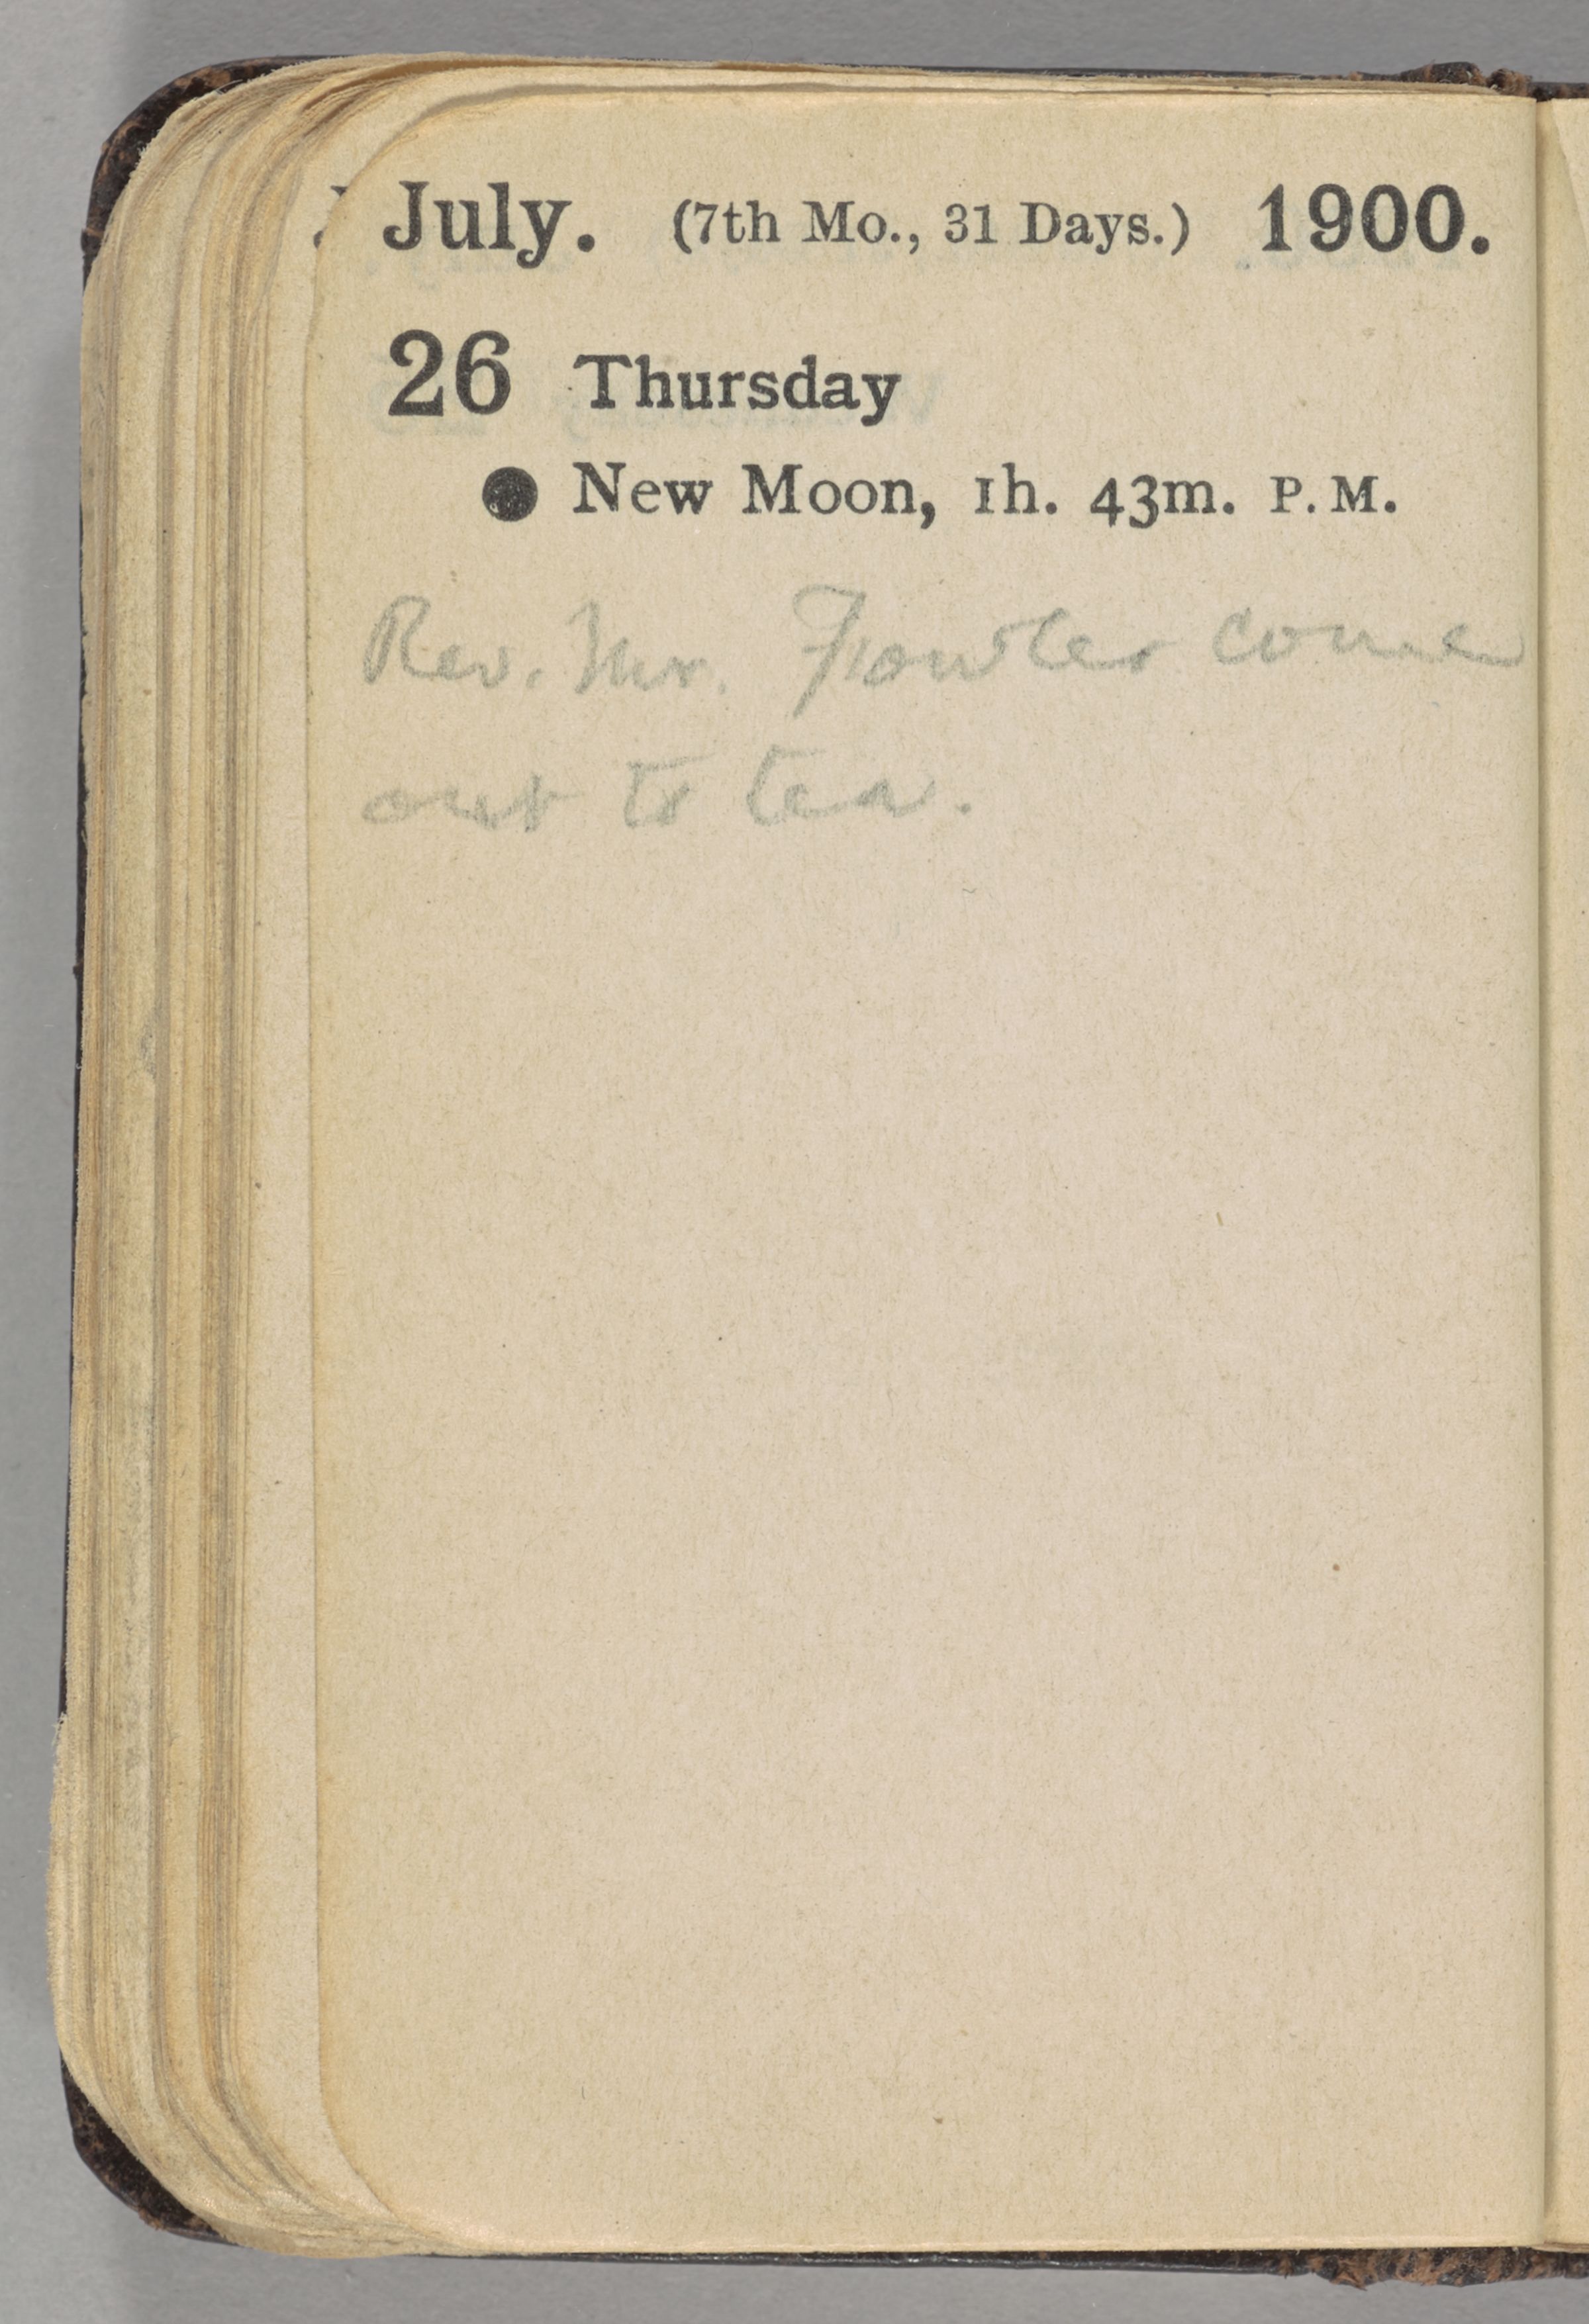 July. (7th Mo., 31 Days.) 1900.
26 Thursday
● New Moon, 1h. 43m. P.M.
Rev. Mr. Fowler come
out to tea.